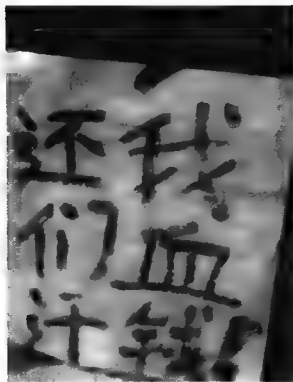 还我
们血
汗钱!